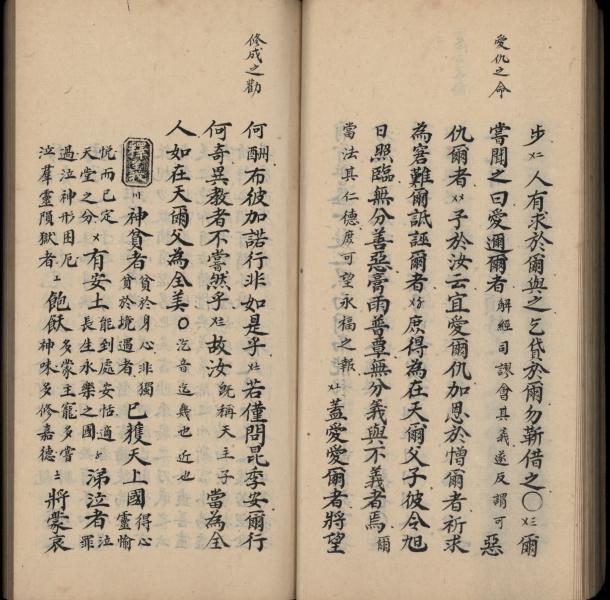 愛仇之命
步〤二人有求於爾與之乞貸於爾勿靳借之〇〤三爾
嘗聞之曰愛邇爾者解經司謬會其義遂反謂可惡
仇爾者〤〤子於汝云宜愛爾仇加恩於憎爾者祈求
為窘難爾詆誣爾者〤〥庶得為在天爾父子彼令旭
日照臨無分善惡霈雨普覃無分義與不義者焉爾
當法其仁德庶可望永福之報〤〦蓋愛愛爾者將望
修成之勸
何酬布彼加諾行非如是乎〤〧若僅問昆季安爾行
何奇異教者不嘗然乎〤〨故汝既稱天主子當為全
人如在天爾父為全美〇汔音迄幾也近也
釋義〣神貧者貧於身心非獨貧於境遇者已獲天上國得心靈愉
悅而已定天堂之分〤有安土能到處安恬適長生永樂之國〥涕泣者泣罪
過泣神形困厄泣羣靈隕獄者〦飽飫多蒙主寵多嘗神味多修嘉德〧將蒙哀